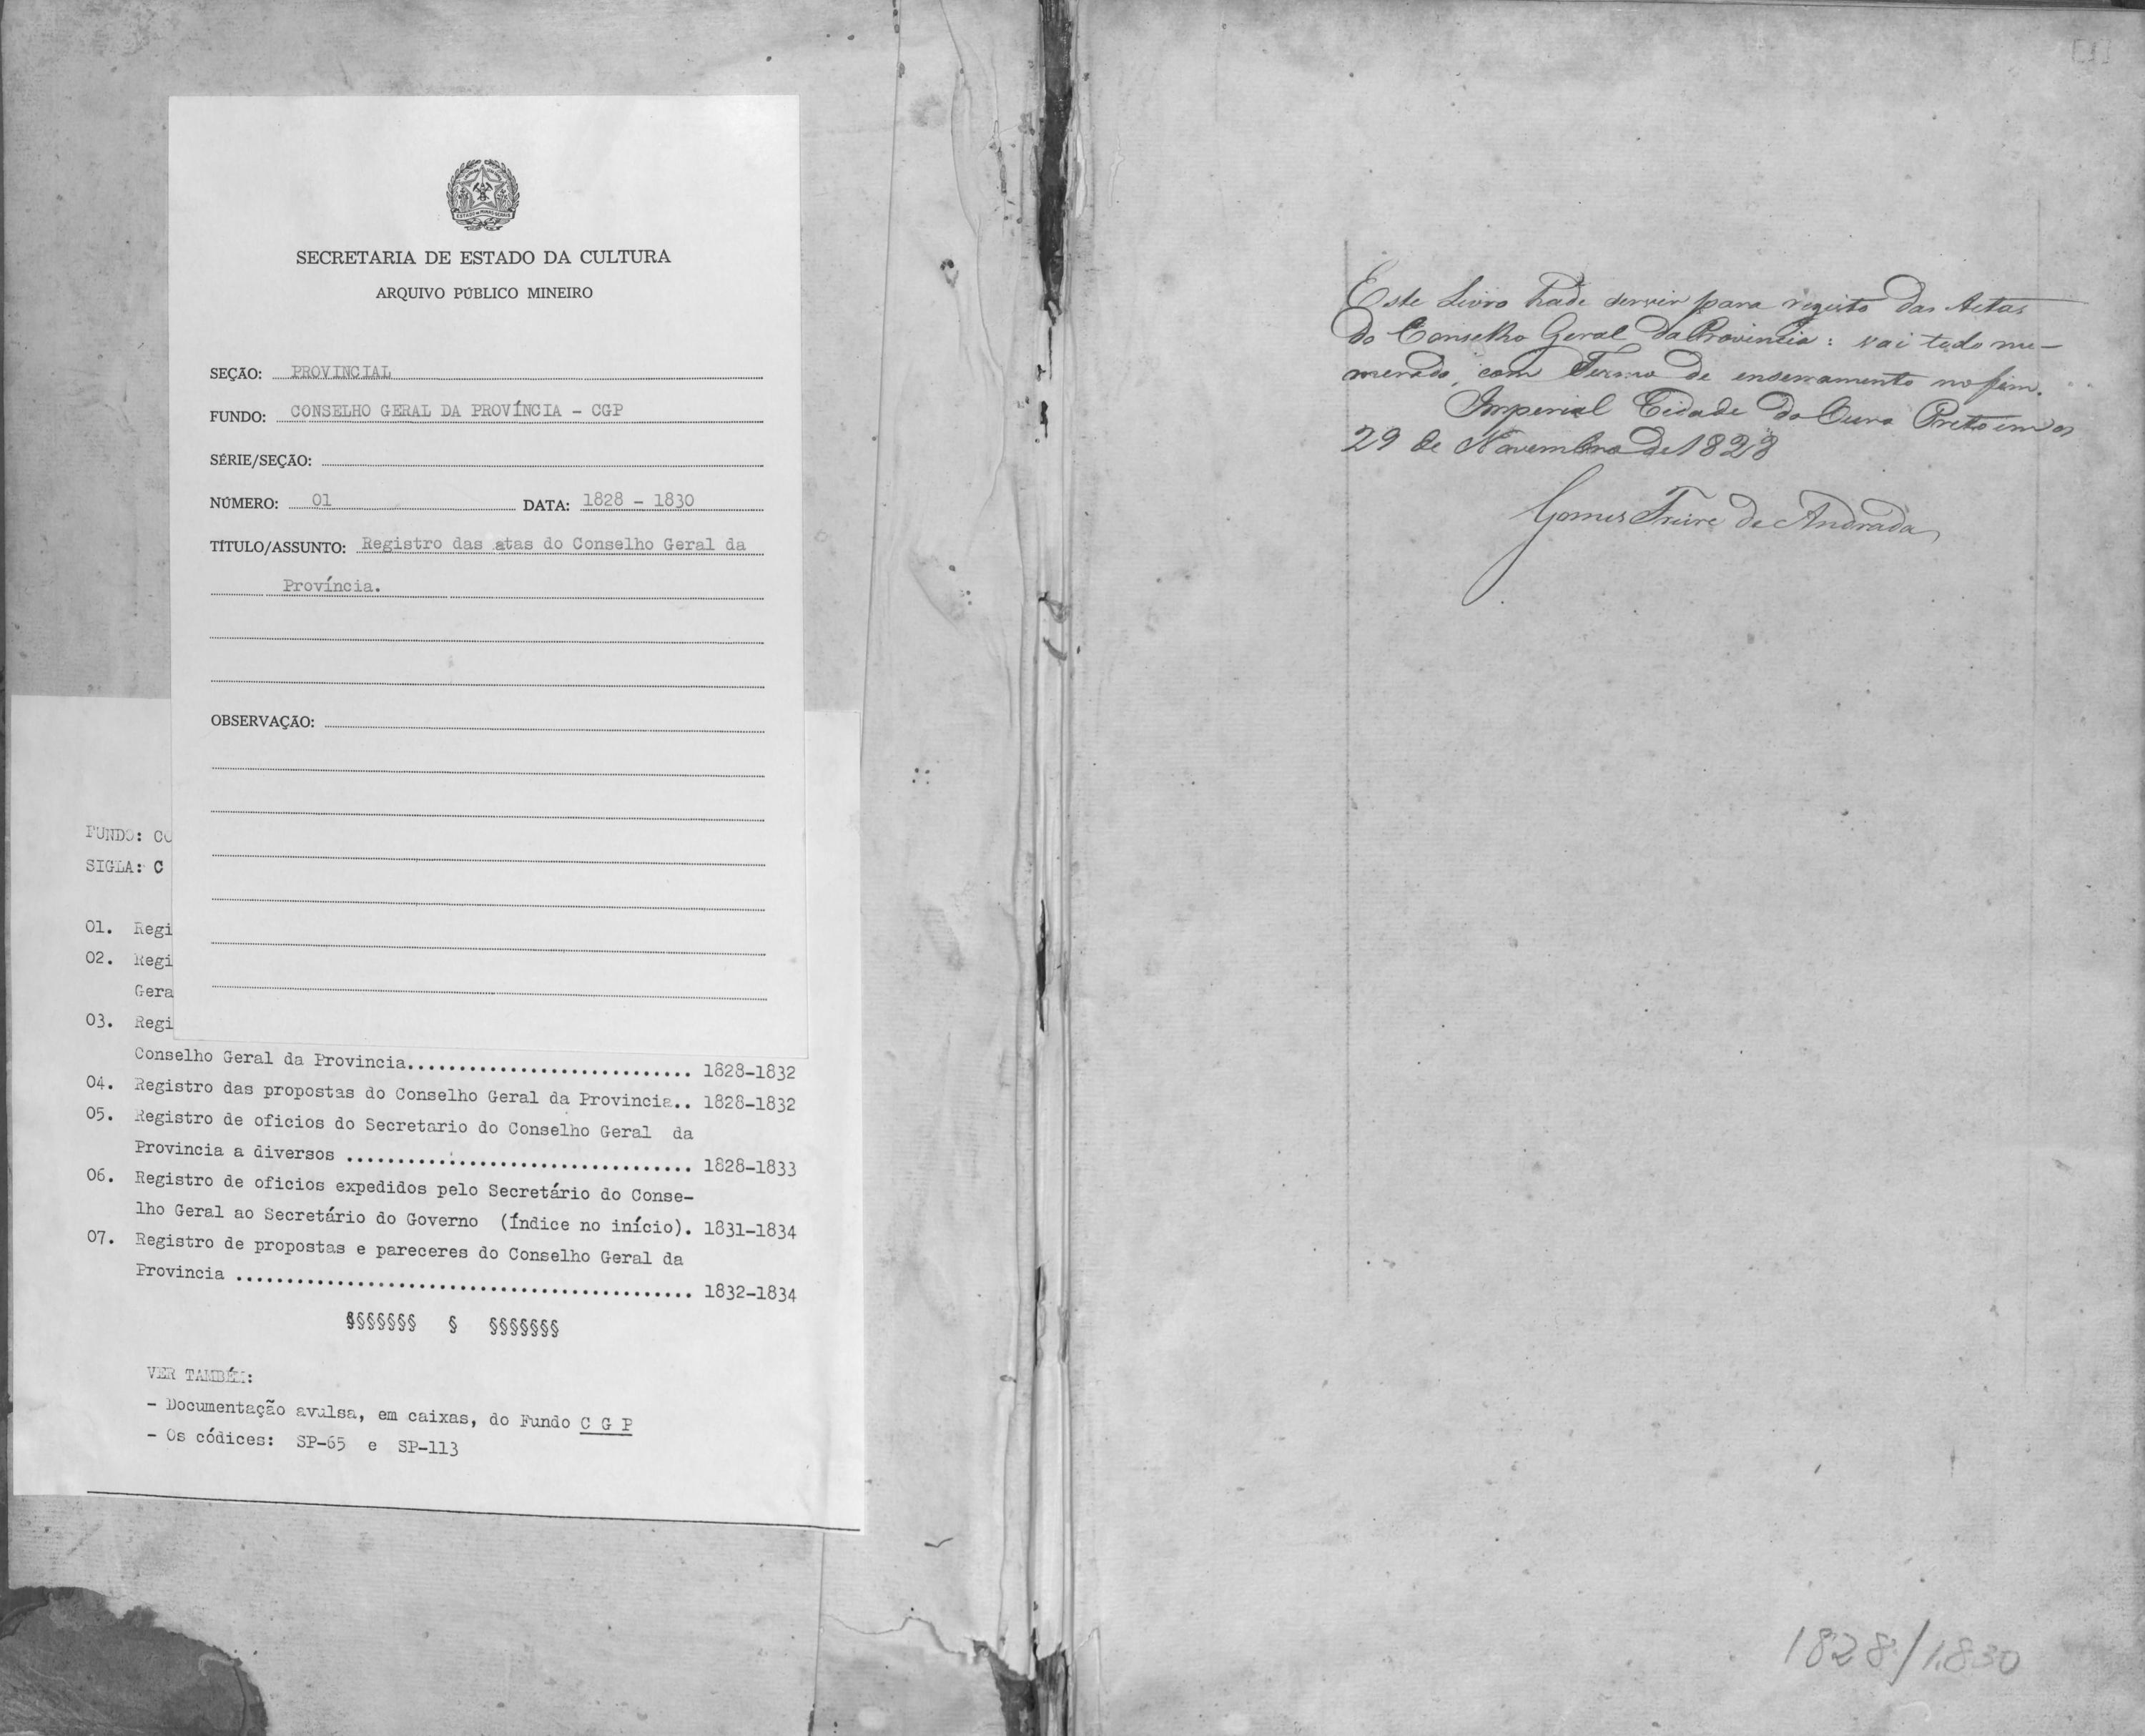 ESTADO DE MINAS GERAIS
SECRETARIA DE ESTADO DA CULTURA
ARQUIVO PÚBLICO MINEIRO
SEÇÃO: PROVINCIAL
FUNDO: CONSELHO GERAL DA PROVÍNCIA - CGP
SÉRIE/SEÇÃO:
NÚMERO: 01 DATA: 1828 - 1830
TÍTULO/ASSUNTO: Registro das atas do Conselho Geral da
Província.
OBSERVAÇÃO:
FUNDO: CO
SIGLA: C
01. Regi
02. Regi
Gera
03. Regi
Conselho Geral da Provincia............................ 1828-1832
04. Registro das propostas do Conselho Geral da Provincia.. 1828-1832
05. Registro de oficios do Secretario do Conselho Geral da
Provincia a diversos .................................. 1828-1833
06. Registro de oficios expedidos pelo Secretário do Conse-
lho Geral ao Secretário do Governo (Índice no início). 1831-1834
07. Registro de propostas e pareceres do Conselho Geral da
Provincia ............................................. 1832-1834
§§§§§§§ § §§§§§§§
VER TAMBÉM:
- Documentação avulsa, em caixas, do Fundo C G P
- Os códices: SP-65 e SP-113
[1]
Este Livro hade servir para registo das Actas
do Conselho Geral da Provincia: vai todo nu-
merado, com Termo de enserramento no fim.
Imperial Cidade do Ouro Preto em os
29 de Novembro de 1828
Gomes Freire de Andrada
1828/1830